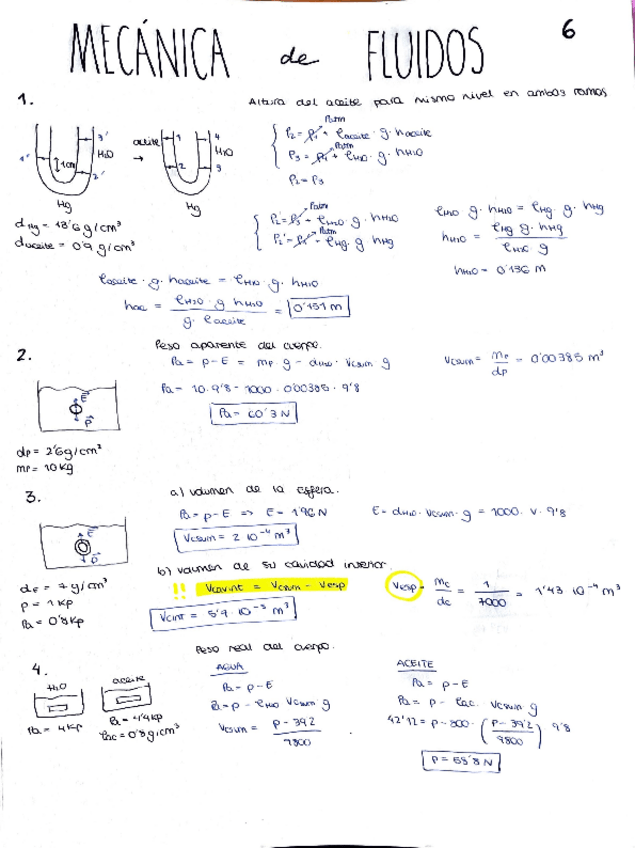 6
MECÁNICA de FLUIDOS
1.
Altura del aceite para mismo nivel en ambos ramos
aceite 1 4
3' H2O → H2O
1' 1cm 2' 2 3
Hg Hg
Patm
P2 = P1 + ρaceite · g · haceite
Patm
P3 = P4 + ρH2O · g · hH2O
P2 = P3
dHg = 13'6 g/cm³
daceite = 0'9 g/cm³
Patm
P2' = P3' + ρH2O · g · hH2O
Patm
P2' = P1' + ρHg · g · hHg
ρH2O · g · hH2O = ρHg · g · hHg
hH2O = ρHg g · hHg / ρH2O g
hH2O = 0'136 m
ρaceite · g · haceite = ρH2O · g · hH2O
hac = ρH2O · g hH2O / g · ρaceite = 0'151 m
2.
Peso aparente del cuerpo.
Pa = p - E = mp · g - dH2O · Vcsum g
Vcsum = mp / dp = 0'00385 m³
Pa = 10 · 9'8 - 1000 · 0'00385 · 9'8
Pa = 60'3 N
E
P
dp = 2'6 g/cm³
mp = 10 kg
3.
a) volumen de la esfera.
Pa = p - E => E = 1'96 N
E = dH2O · Vcsum · g = 1000 · V · 9'8
Vcsum = 2 10⁻⁴ m³
E
P
b) volumen de su cavidad interior.
!! Vcavint = Vcsum - Vesp
Vesp = mc / dc = 1 / 7000 = 1'43 10⁻⁴ m³
Vcint = 5'7 · 10⁻⁵ m³
de = 7 g/cm³
p = 1 kp
Pa = 0'8 kp
4.
Peso real del cuerpo.
H2O aceite
Pa = 4 kp
Pa = 4'4 kp
ρac = 0'8 g/cm³
AGUA
Pa = p - E
Pa = p - ρH2O Vcsum g
Vcsum = p - 39'2 / 9800
ACEITE
Pa = p - E
Pa = p - ρac · Vcsum g
43'12 = p - 800 · (p - 39'2 / 9800) 9'8
P = 58'8 N